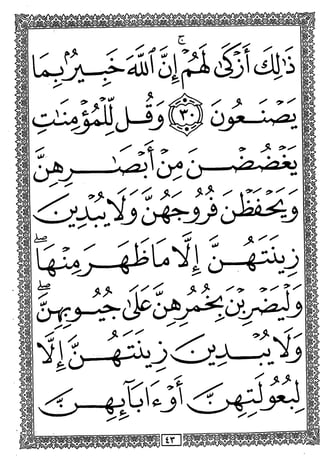 ذَٰلِكَ أَزْكَىٰ لَهُمْ ۚ إِنَّ ٱللَّهَ خَبِيرٌۢ بِمَا
يَصْنَعُونَ ٣٠ وَقُل لِّلْمُؤْمِنَٰتِ
يَغْضُضْنَ مِنْ أَبْصَٰرِهِنَّ
وَيَحْفَظْنَ فُرُوجَهُنَّ وَلَا يُبْدِينَ
زِينَتَهُنَّ إِلَّا مَا ظَهَرَ مِنْهَا ۖ
وَلْيَضْرِبْنَ بِخُمُرِهِنَّ عَلَىٰ جُيُوبِهِنَّ ۖ
وَلَا يُبْدِينَ زِينَتَهُنَّ إِلَّا
لِبُعُولَتِهِنَّ أَوْ ءَابَآئِهِنَّ
٤٣